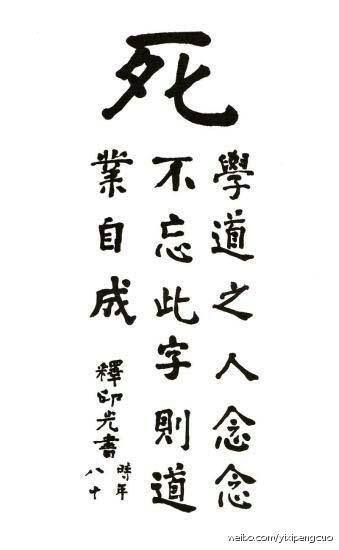 死
學道之人念念
不忘此字則道
業自成
釋印光書
時年
八十
weibo.com/yixipengcuo